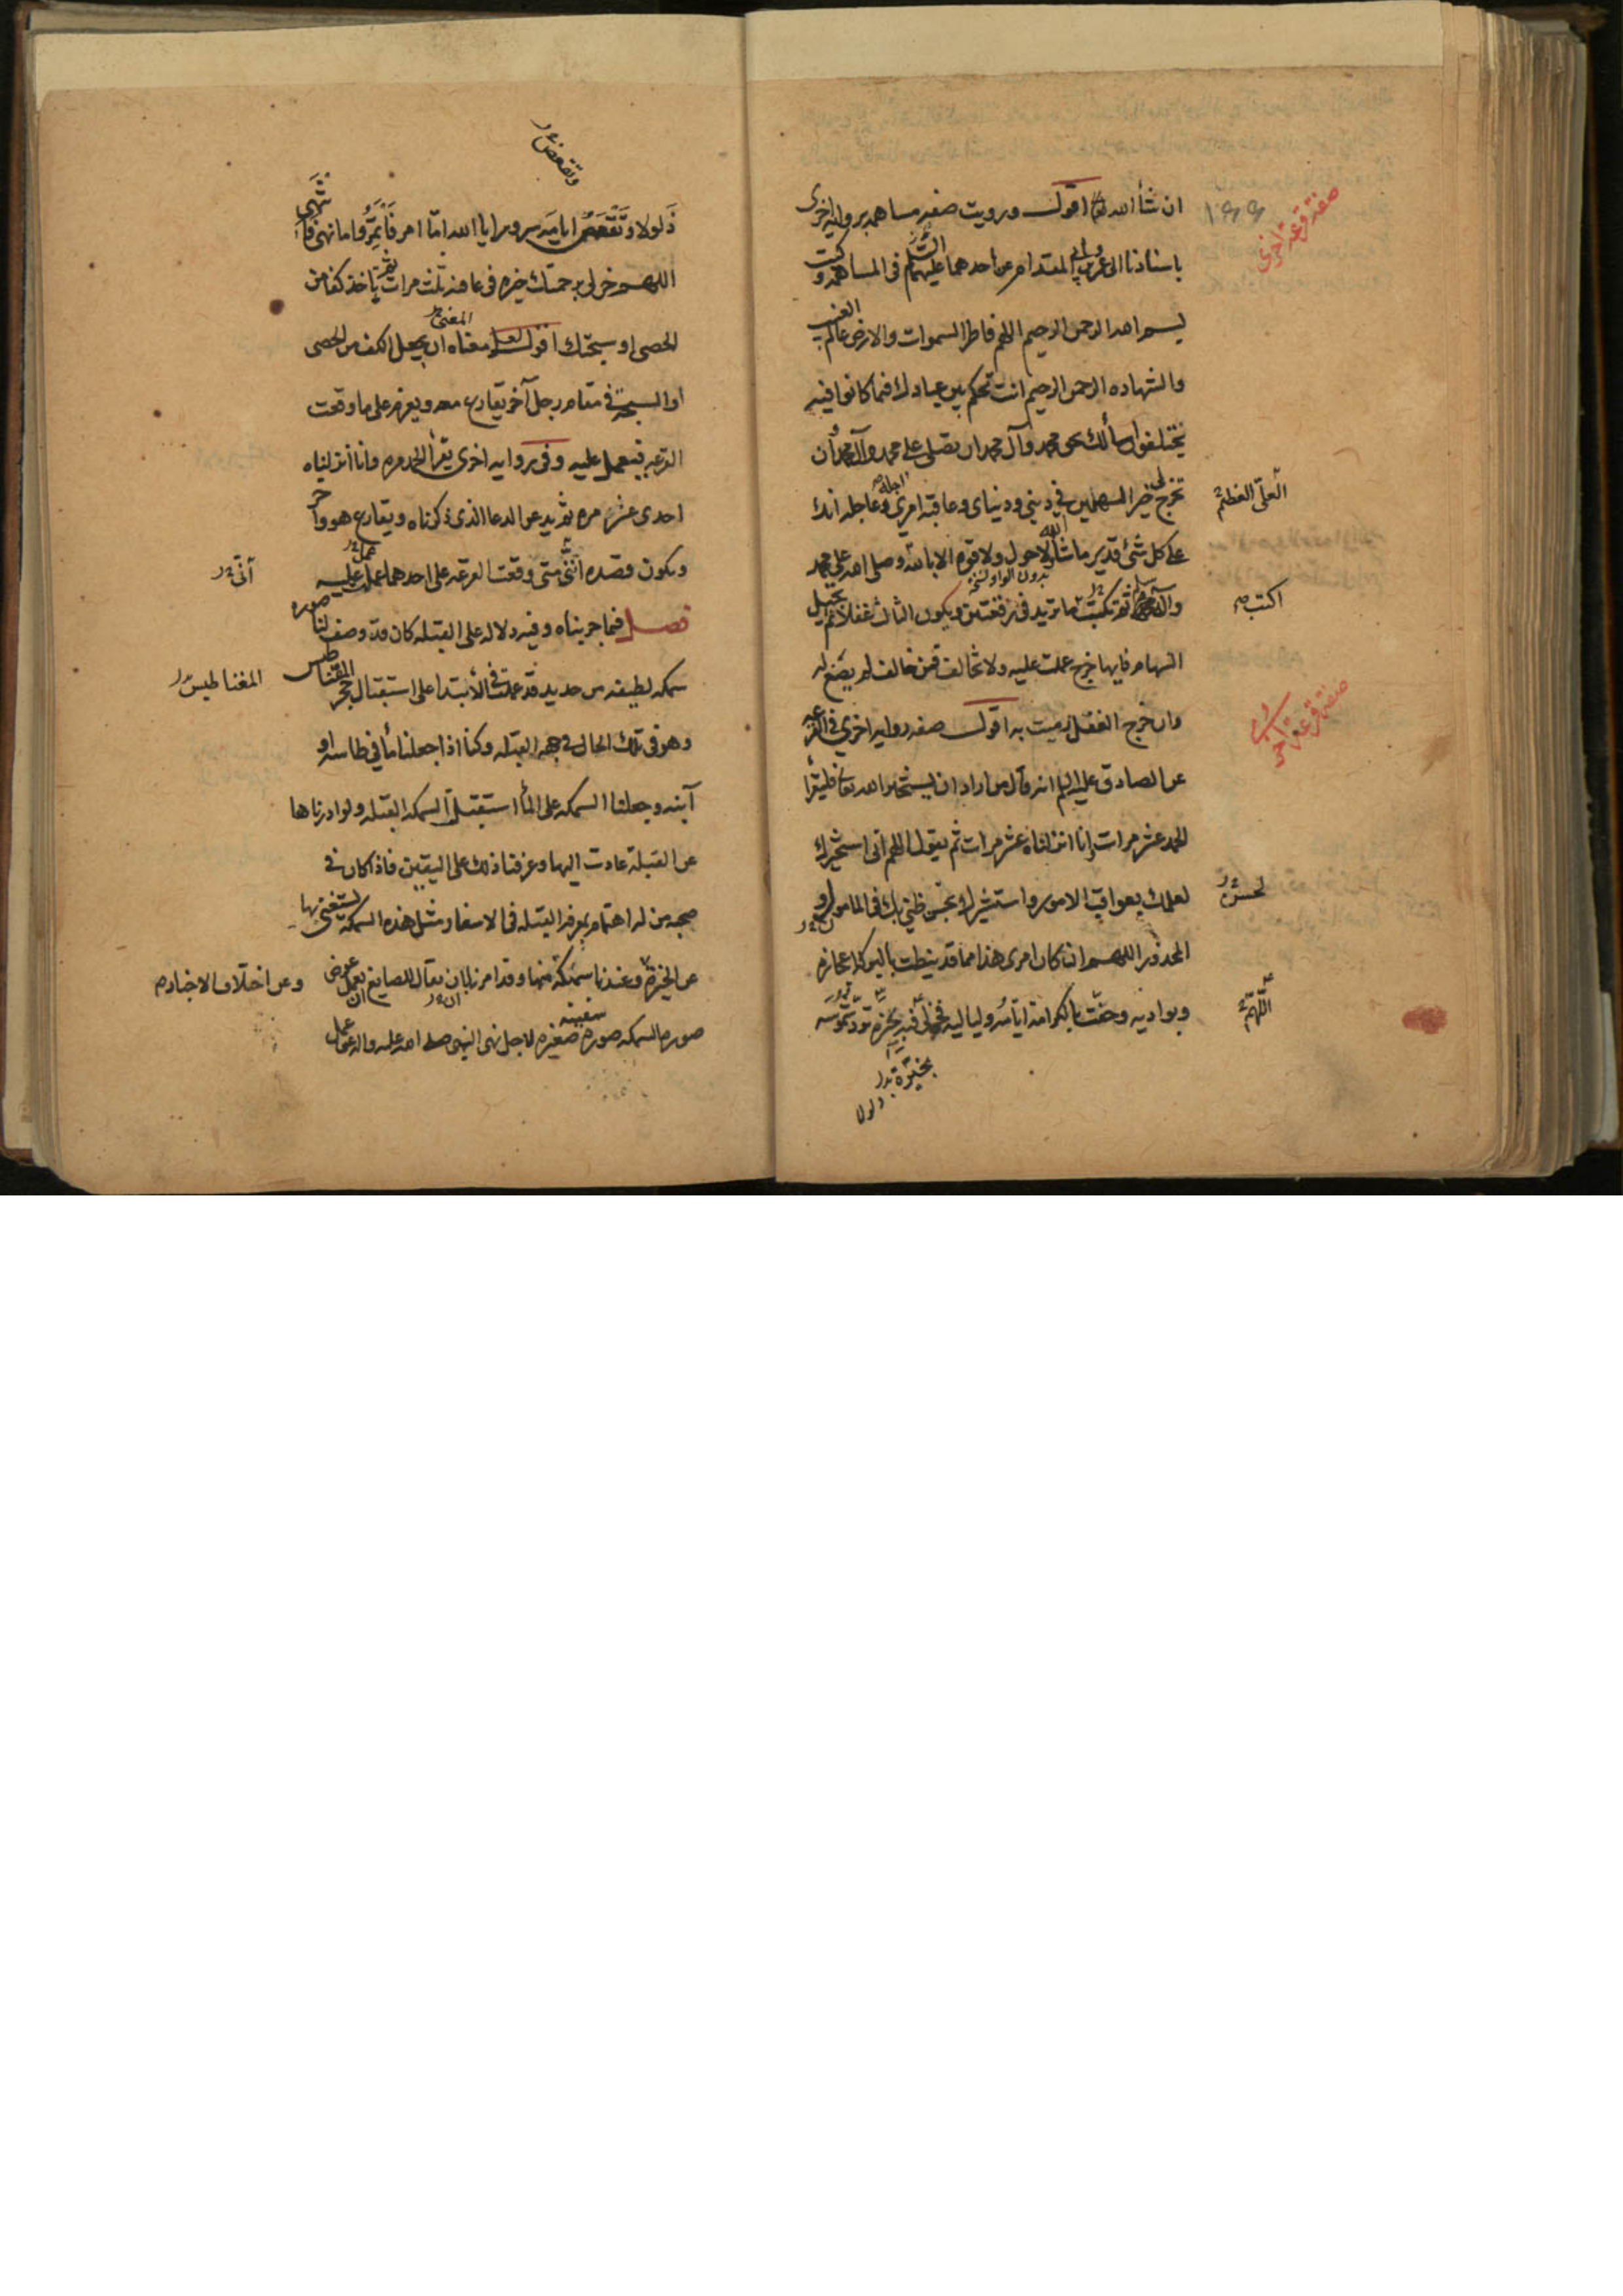 ان شأ الله تعا اقول ورويت صفه مساهمه بروايه اخرى
صفة قرعة اخرى
باسنادنا الى عمرو بن ابى المقدام عن احدهما عليهما السلم فى المساهمه وكتب
بسم الله الرحمن الرحيم اللهم فاطر السموات والارض عالم الغيب
والشهاده الرحمن الرحيم انت تحكم بين عبادك فيما كانوا فيه
يختلفون اسألك بحق محمد وآل محمد ان تصلى على محمد وآل محمد وأن
تخرج لى خير السهمين فى دينى ودنياى وعاقبة امرى وعاجله انك
اجله
العلى العظيم
على كل شئ قدير ما شأ الله لا حول ولا قوه الا بالله وصلى الله على محمد
بدون الواو نسخه
وآله وسلم ثم تكتب ما تريد فى رقعتين ويكون الثالث غفلا ثم تجيل
اكتب
السهام فايها خرج عملت عليه ولا تخالف فمن خالف لم يصنع له
وان خرج الغفل رميت به اقول صفه روايه اخرى فى القرعه
صفة قرعة اخرى
عن الصادق عليه السلم انه قال من اراد ان يستخير الله تعا فليقرأ
الحمد عشر مرات وإنا انزلناه عشر مرات ثم يقول اللهم انى استخيرك
لعلمك بعواقب الامور واستشيرك بحسن ظنى بك فى المامول و
لحسن
المحذور اللهم ان كان امرى هذا مما قد نيطت بالبركة اعجازه
وبواديه وحفت بالكرامة ايامه ولياليه فخر لى فيه بخيره ترد شموسه
اللهم
بخيرة ترد
ذلولا
وتقعض
ذلولا وتقعض ايامه سرورا يا الله امّا امر فَأْتَمِرُ واما نهى فأنتهى
اللهم خر لى برحمتك خيره فى عافيه ثلث مرات ثم يأخذ كفا من
الحصى او سبحتك اقول لعل معناه ان يجعل الكف من الحصى
المعنى
او السبحه فى مقام رجل آخر يقارع معه ويعزم على ما وقعت
القرعه فيعمل عليه وفى روايه اخرى يقرأ الحمد مره وانا انزلناه
احدى عشر مره ثم يدعو الدعا الذى ذكرناه ويقارع هو وآخر
ويكون قصده اننى متى وقعت القرعه على احدهما عمل عليه
أنى
فصل فيما جربناه وفيه دلاله على القبله كان قد وصف لنا صوره
سمكه لطيفه من حديد قد عملت فى الأبتدا على استقبال حجر المقناطيس
المغناطيس
وهو فى تلك الحال فى جهه القبله وكنا اذا جعلنا مأ فى طاسه او
آنيه وجعلنا السمكه على المأ استقبلت السمكه القبله ولو ادرناها
عن القبلة عادت اليها وعرفنا ذلك على اليقين فاذا كان فى
صحبه من له اهتمام بمعرفه القبله فى الاسفار مثل هذه السمكه يستغنى بها
عن الحيرة وعندنا سمكه منها وقد امرنا بان يقال للصايغ يعمل عوض
وعن اختلاف الاخبار
صوره السمكه صوره سفينه صغيره لاجل نهى النبى صلى الله عليه واله عن عمل